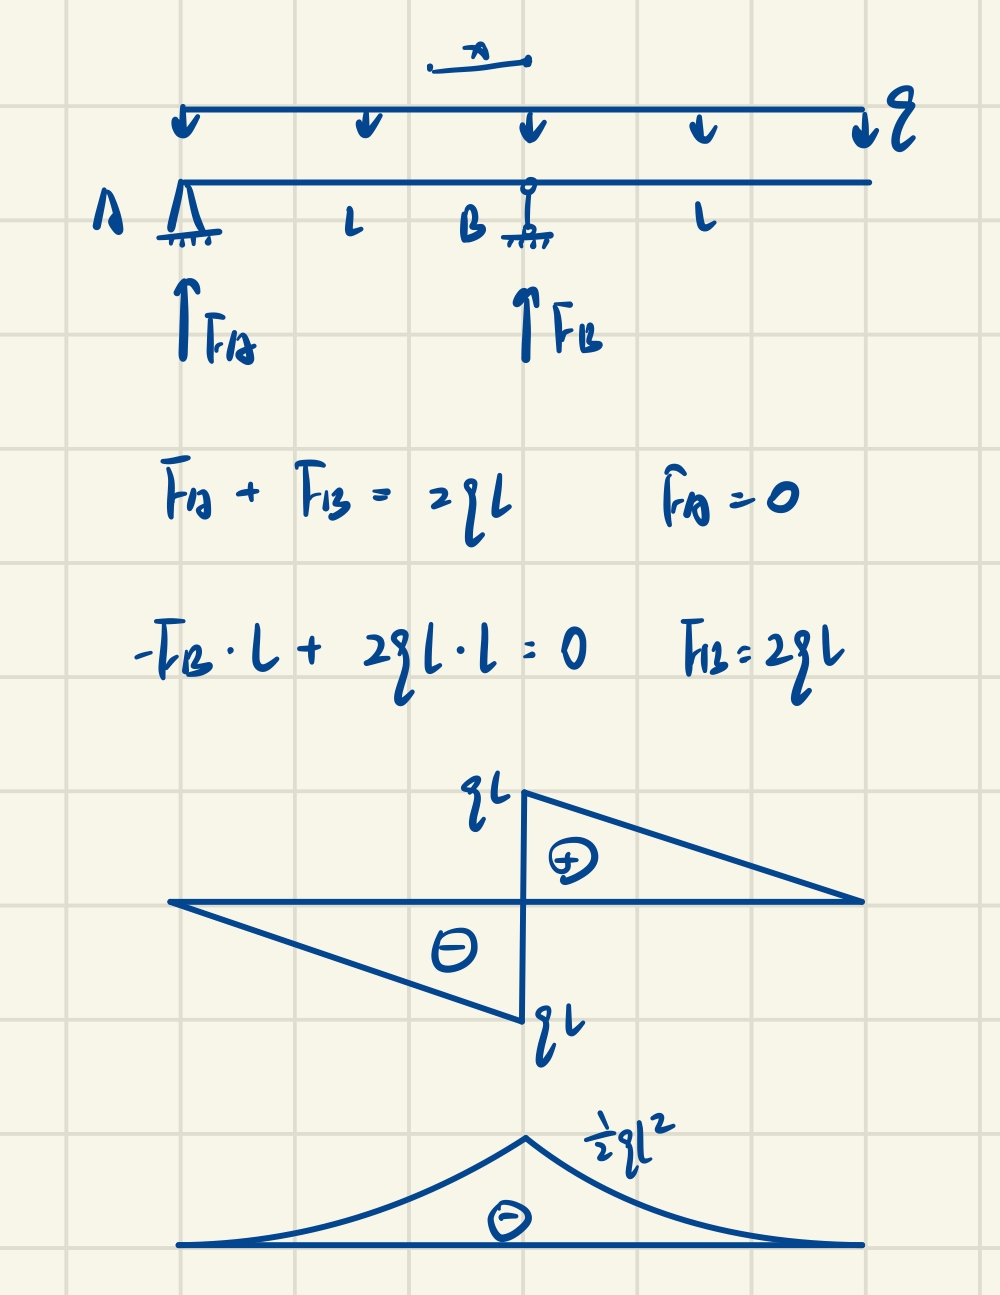 x
q
A L B L
F_A F_B
F_A + F_B = 2qL F_A = 0
-F_B · L + 2qL · L = 0 F_B = 2qL
qL
⊕
⊖
qL
½qL²
⊖